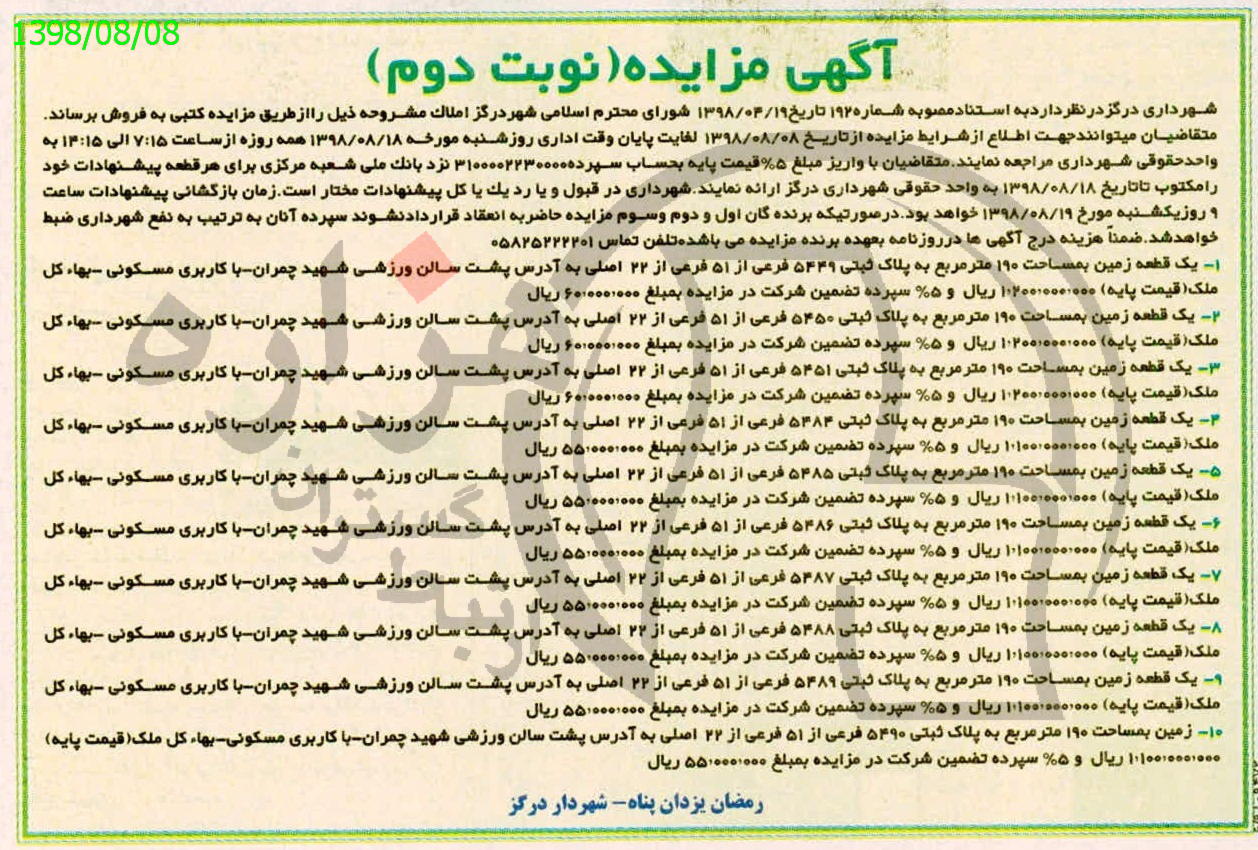 1398/08/08
آگهی مزایده(نوبت دوم)
شهرداری درگزدرنظرداردبه استنادمصوبه شماره۱۹۲ تاریخ۱۳۹۸/۰۴/۱۹ شورای محترم اسلامی شهردرگز املاك مشروحه ذیل رااز‌طریق مزایده کتبی به فروش برساند.
متقاضیان میتوانندجهت اطلاع ازشرایط مزایده ازتاریخ ۱۳۹۸/۰۸/۰۸ لغایت پایان وقت اداری روزشنبه مورخه ۱۳۹۸/۰۸/۱۸ همه روزه ازساعت ۷:۱۵ الی ۱۴:۱۵ به
واحدحقوقی شهرداری مراجعه نمایند.متقاضیان با واریز مبلغ ۵%قیمت پایه بحساب سپرده۳۱۰۰۰۰۲۲۳۰۰۰۰ نزد بانك ملی شعبه مرکزی برای هرقطعه پیشنهادات خود
رامکتوب تاتاریخ ۱۳۹۸/۰۸/۱۸ به واحد حقوقی شهرداری درگز ارائه نمایند.شهرداری در قبول و یا رد یك یا کل پیشنهادات مختار است.زمان بازگشائی پیشنهادات ساعت
۹ روزیکشنبه مورخ ۱۳۹۸/۰۸/۱۹ خواهد بود.درصورتیکه برنده گان اول و دوم وسوم مزایده حاضربه انعقاد قراردادنشوند سپرده آنان به ترتیب به نفع شهرداری ضبط
خواهدشد.ضمناً هزینه درج آگهی ها درروزنامه بعهده برنده مزایده می باشد،تلفن تماس ۰۵۸۲۵۲۲۲۲۰۱
۱- یک قطعه زمین بمساحت ۱۹۰ مترمربع به پلاک ثبتی ۵۴۴۹ فرعی از ۵۱ فرعی از ۲۲ اصلی به آدرس پشت سالن ورزشی شهید چمران-با کاربری مسکونی -بهاء کل
ملک(قیمت پایه) ۱،۲۰۰،۰۰۰،۰۰۰ ریال و ۵% سپرده تضمین شرکت در مزایده بمبلغ ۶۰،۰۰۰،۰۰۰ ریال
۲- یک قطعه زمین بمساحت ۱۹۰ مترمربع به پلاک ثبتی ۵۴۵۰ فرعی از ۵۱ فرعی از ۲۲ اصلی به آدرس پشت سالن ورزشی شهید چمران-با کاربری مسکونی -بهاء کل
ملک(قیمت پایه) ۱،۲۰۰،۰۰۰،۰۰۰ ریال و ۵% سپرده تضمین شرکت در مزایده بمبلغ ۶۰،۰۰۰،۰۰۰ ریال
۳- یک قطعه زمین بمساحت ۱۹۰ مترمربع به پلاک ثبتی ۵۴۵۱ فرعی از ۵۱ فرعی از ۲۲ اصلی به آدرس پشت سالن ورزشی شهید چمران-با کاربری مسکونی -بهاء کل
ملک(قیمت پایه) ۱،۲۰۰،۰۰۰،۰۰۰ ریال و ۵% سپرده تضمین شرکت در مزایده بمبلغ ۶۰،۰۰۰،۰۰۰ ریال
۴- یک قطعه زمین بمساحت ۱۹۰ مترمربع به پلاک ثبتی ۵۴۸۴ فرعی از ۵۱ فرعی از ۲۲ اصلی به آدرس پشت سالن ورزشی شهید چمران-با کاربری مسکونی -بهاء کل
ملک(قیمت پایه) ۱،۱۰۰،۰۰۰،۰۰۰ ریال و ۵% سپرده تضمین شرکت در مزایده بمبلغ ۵۵،۰۰۰،۰۰۰ ریال
۵- یک قطعه زمین بمساحت ۱۹۰ مترمربع به پلاک ثبتی ۵۴۸۵ فرعی از ۵۱ فرعی از ۲۲ اصلی به آدرس پشت سالن ورزشی شهید چمران-با کاربری مسکونی -بهاء کل
ملک(قیمت پایه) ۱،۱۰۰،۰۰۰،۰۰۰ ریال و ۵% سپرده تضمین شرکت در مزایده بمبلغ ۵۵،۰۰۰،۰۰۰ ریال
۶- یک قطعه زمین بمساحت ۱۹۰ مترمربع به پلاک ثبتی ۵۴۸۶ فرعی از ۵۱ فرعی از ۲۲ اصلی به آدرس پشت سالن ورزشی شهید چمران-با کاربری مسکونی -بهاء کل
ملک(قیمت پایه) ۱،۱۰۰،۰۰۰،۰۰۰ ریال و ۵% سپرده تضمین شرکت در مزایده بمبلغ ۵۵،۰۰۰،۰۰۰ ریال
۷- یک قطعه زمین بمساحت ۱۹۰ مترمربع به پلاک ثبتی ۵۴۸۷ فرعی از ۵۱ فرعی از ۲۲ اصلی به آدرس پشت سالن ورزشی شهید چمران-با کاربری مسکونی -بهاء کل
ملک(قیمت پایه) ۱،۱۰۰،۰۰۰،۰۰۰ ریال و ۵% سپرده تضمین شرکت در مزایده بمبلغ ۵۵،۰۰۰،۰۰۰ ریال
۸- یک قطعه زمین بمساحت ۱۹۰ مترمربع به پلاک ثبتی ۵۴۸۸ فرعی از ۵۱ فرعی از ۲۲ اصلی به آدرس پشت سالن ورزشی شهید چمران-با کاربری مسکونی -بهاء کل
ملک(قیمت پایه) ۱،۱۰۰،۰۰۰،۰۰۰ ریال و ۵% سپرده تضمین شرکت در مزایده بمبلغ ۵۵،۰۰۰،۰۰۰ ریال
۹- یک قطعه زمین بمساحت ۱۹۰ مترمربع به پلاک ثبتی ۵۴۸۹ فرعی از ۵۱ فرعی از ۲۲ اصلی به آدرس پشت سالن ورزشی شهید چمران-با کاربری مسکونی -بهاء کل
ملک(قیمت پایه) ۱،۱۰۰،۰۰۰،۰۰۰ ریال و ۵% سپرده تضمین شرکت در مزایده بمبلغ ۵۵،۰۰۰،۰۰۰ ریال
۱۰- زمین بمساحت ۱۹۰ مترمربع به پلاک ثبتی ۵۴۹۰ فرعی از ۵۱ فرعی از ۲۲ اصلی به آدرس پشت سالن ورزشی شهید چمران-با کاربری مسکونی-بهاء کل ملک(قیمت پایه)
۱،۱۰۰،۰۰۰،۰۰۰ ریال و ۵% سپرده تضمین شرکت در مزایده بمبلغ ۵۵،۰۰۰،۰۰۰ ریال
رمضان یزدان پناه- شهردار درگز